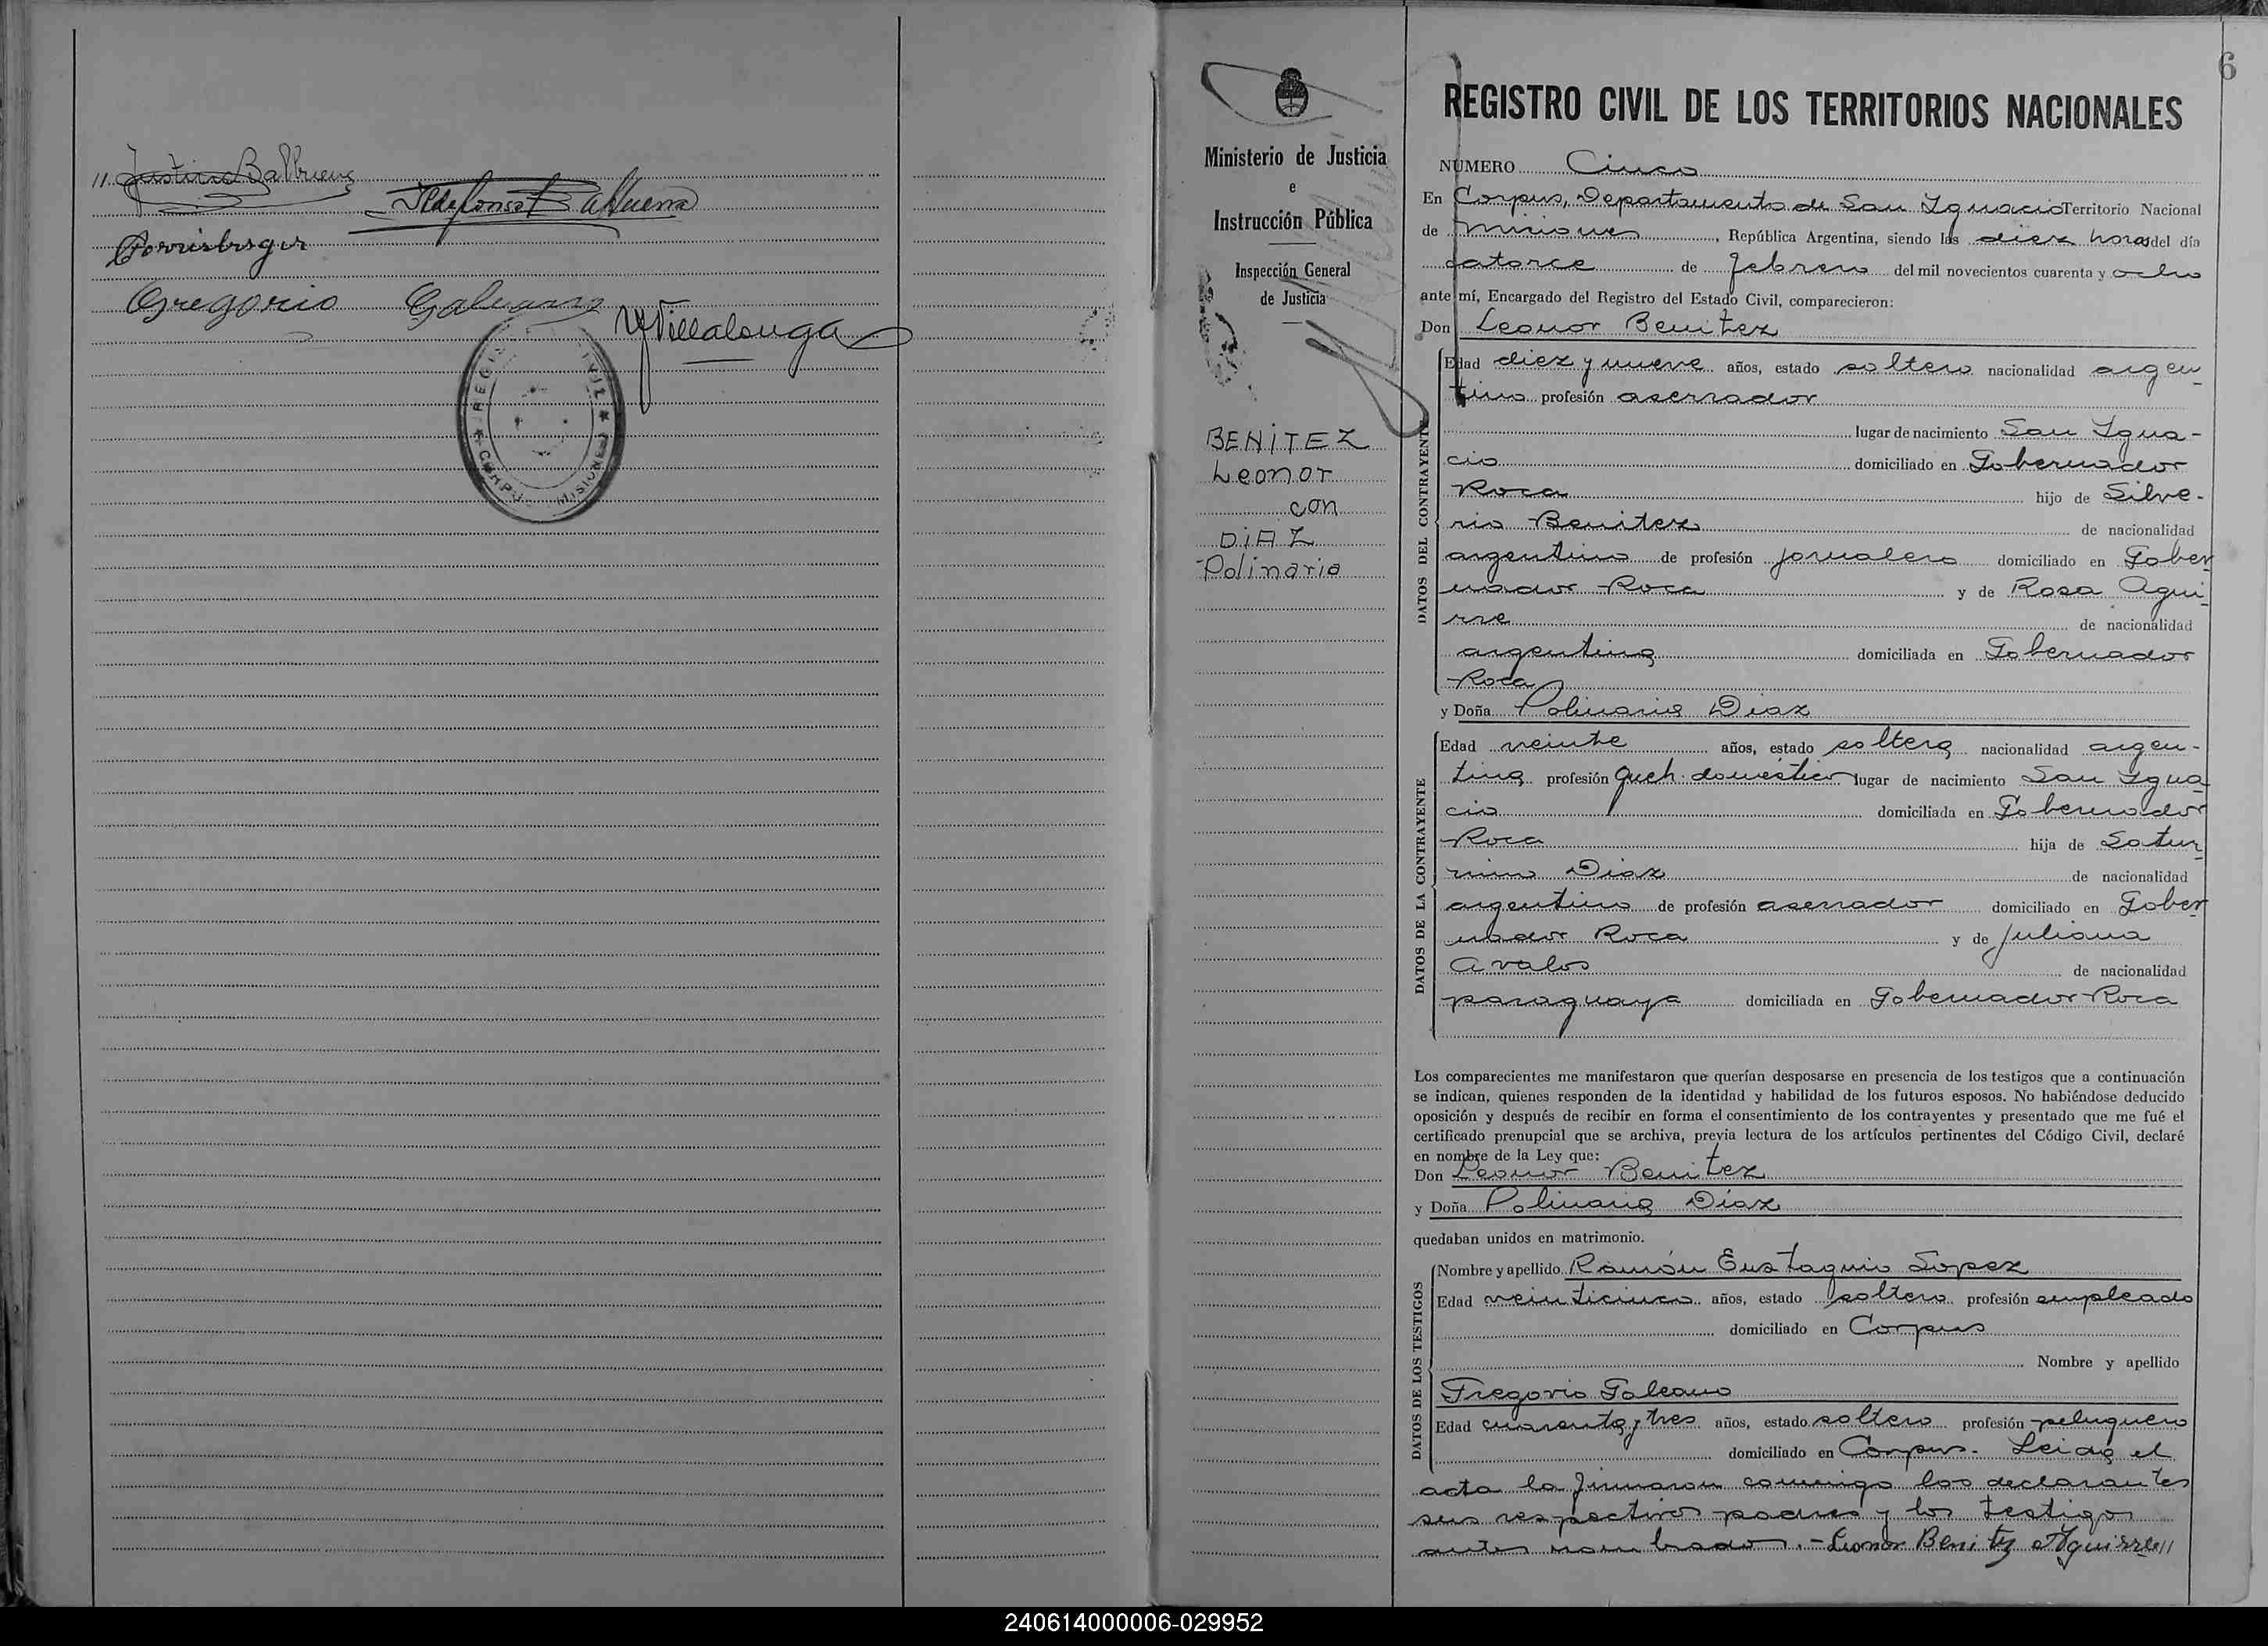 11. Justina Balbuena
Ildefonso Balbuena
Gregorio Galeano
YVillalonga
REGIS IVIL
CORPUS MISIONES
6
Ministerio de Justicia
e
Instrucción Pública
Inspección General
de Justicia
BENITEZ
Leonor
con
DIAZ
Polinaria
REGISTRO CIVIL DE LOS TERRITORIOS NACIONALES
NUMERO Cinco
En Corpus, Departamento de San Ignacio Territorio Nacional
de Misiones, República Argentina, siendo las diez horas del día
catorce de febrero del mil novecientos cuarenta y ocho
ante mí, Encargado del Registro del Estado Civil, comparecieron:
Don Leonor Benitez
DATOS DEL CONTRAYENTE
Edad diez y nueve años, estado soltero nacionalidad argen-
tino profesión aserrador
lugar de nacimiento San Igna-
cio domiciliado en Gobernador
Roca hijo de Silve-
rio Benitez de nacionalidad
argentino de profesión jornalero domiciliado en Gober
nador Roca y de Rosa Agui
rre de nacionalidad
argentina domiciliada en Gobernador
Roca
y Doña Polinaria Diaz
DATOS DE LA CONTRAYENTE
Edad veinte años, estado soltera nacionalidad argen-
tina profesión queh. domésticos lugar de nacimiento San Igna
cio domiciliada en Gobernador
Roca hija de Satur
nino Diaz de nacionalidad
argentino de profesión aserrador domiciliado en Gober
nador Roca y de Juliana
Avalos de nacionalidad
paraguaya domiciliada en Gobernador Roca
Los comparecientes me manifestaron que querían desposarse en presencia de los testigos que a continuación
se indican, quienes responden de la identidad y habilidad de los futuros esposos. No habiéndose deducido
oposición y después de recibir en forma el consentimiento de los contrayentes y presentado que me fué el
certificado prenupcial que se archiva, previa lectura de los artículos pertinentes del Código Civil, declaré
en nombre de la Ley que:
Don Leonor Benitez
y Doña Polinaria Díaz
quedaban unidos en matrimonio.
DATOS DE LOS TESTIGOS
Nombre y apellido Ramón Eustaquio Lopez
Edad veinticinco años, estado soltero profesión empleado
domiciliado en Corpus
Nombre y apellido
Gregorio Galeano
Edad cuarenta y tres años, estado soltero profesión peluquero
domiciliado en Corpus.- Leida el
acta la firmaron conmigo los declarantes
sus respectivos padres y los testigos
antes nombrados.- Leonor Benitez Aguirre//
240614000006-029952